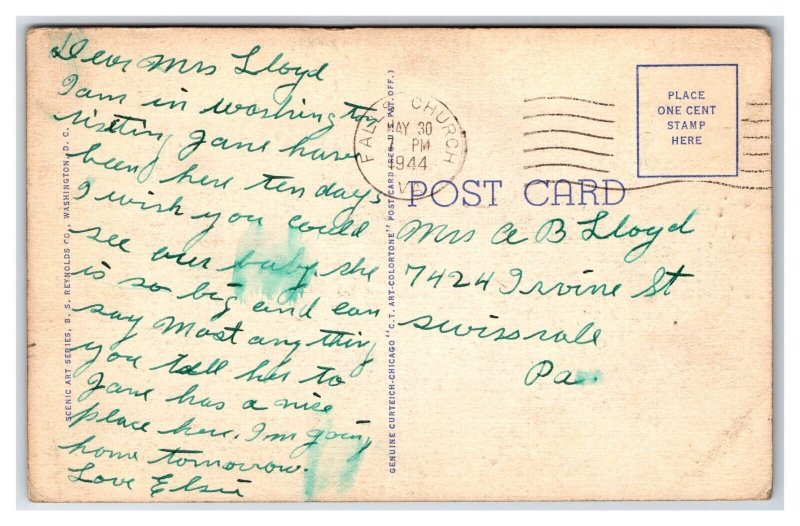 Dear Mrs Lloyd
I am in washington
visiting Jane have
been here ten days
I wish you could
see our baby. she
is so big and can
say most anything
you tell her to
Jane has a nice
place here. I'm going
home tomorrow.
Love Elsie
SCENIC ART SERIES, B. S. REYNOLDS CO., WASHINGTON, D. C.
GENUINE CURTEICH-CHICAGO "C.T. ART-COLORTONE" POST CARD (REG. U.S. PAT. OFF.)
FALLS CHURCH
MAY 30
PM
1944
VA
PLACE
ONE CENT
STAMP
HERE
POST CARD
Mrs A B Lloyd
7424 Irvine St
Swissvale
Pa.